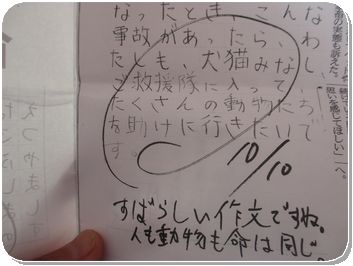 なったとき、こんな
事故があったら、わ
たしも、犬猫みなし
ご救援隊に入って、
たくさんの動物たち
を助けに行きたいで
す。
10/10
すばらしい作文ですね。
人も動物も命は同じ。
の実態も訴えた。
思いを感じてほしい」へ。